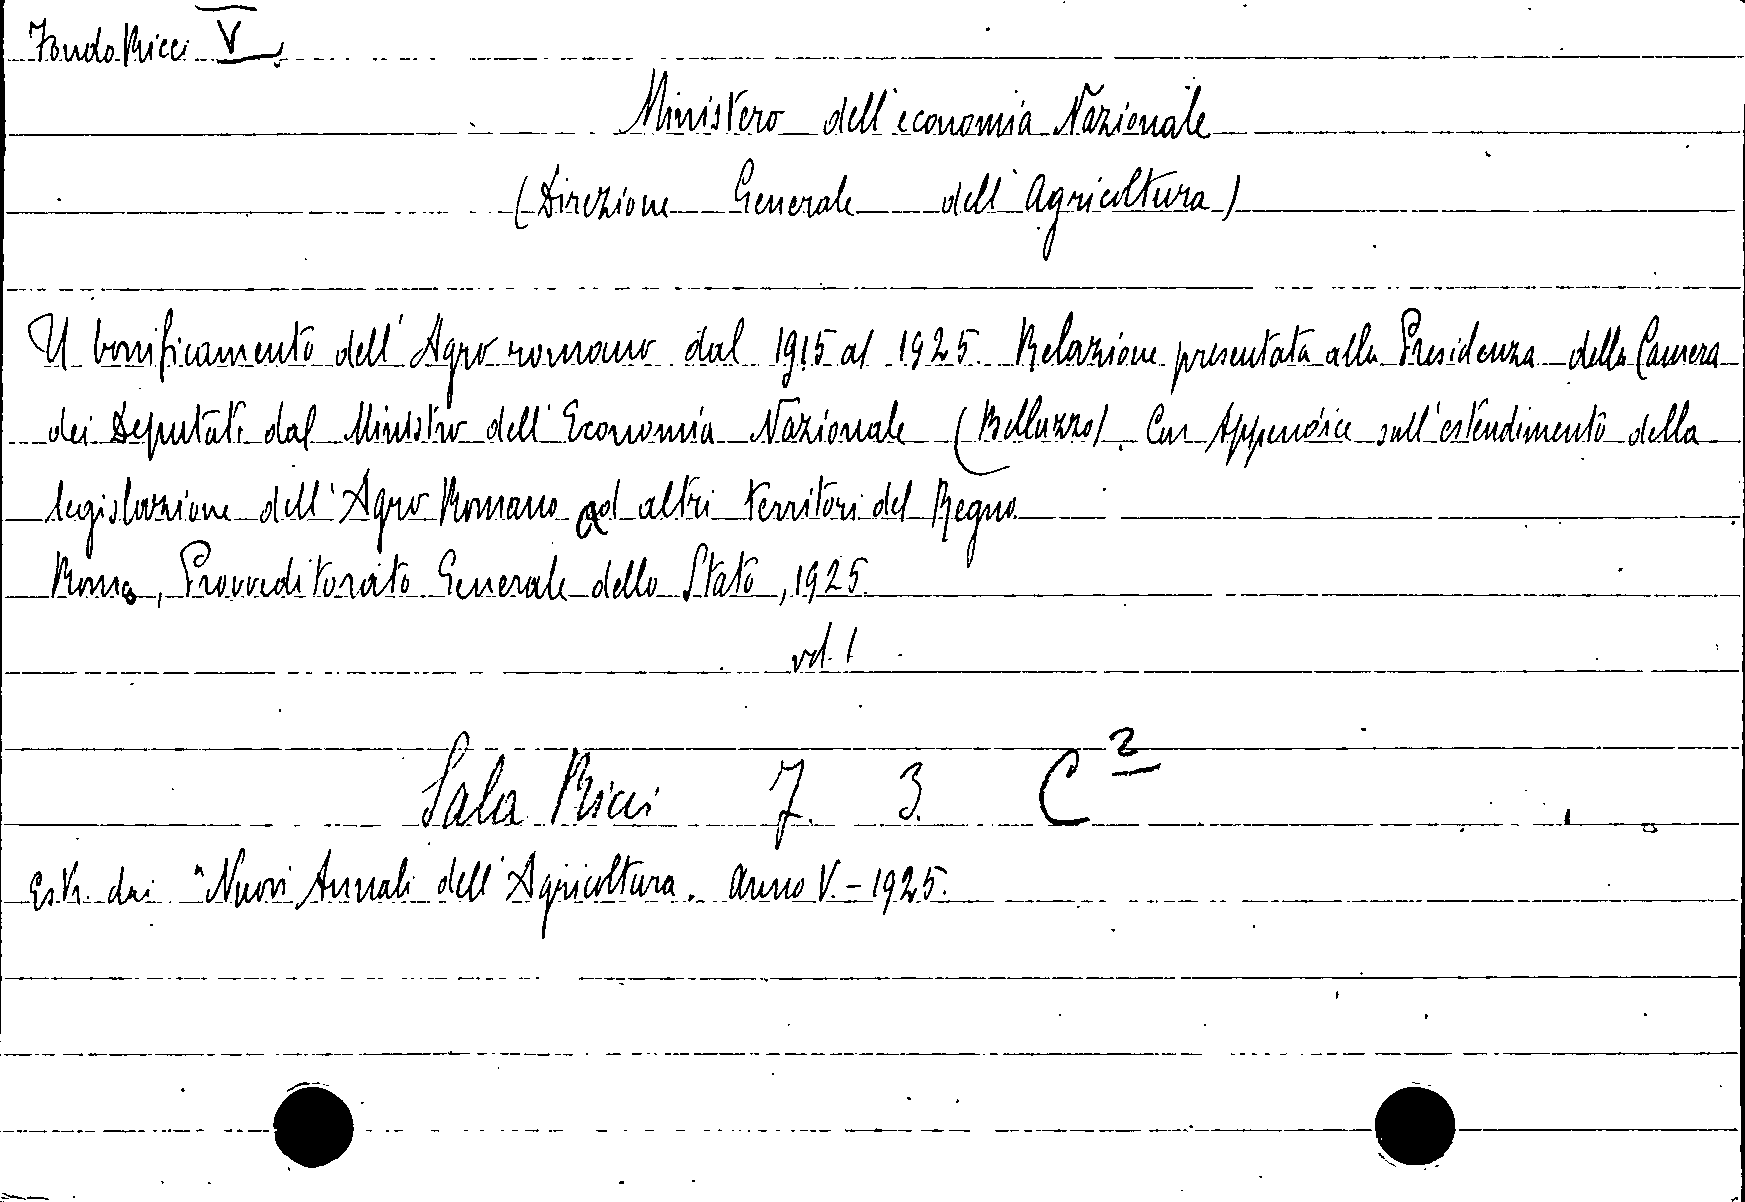 Fondo Ricci V
Ministero dell'economia Nazionale
(Direzione Generale dell'Agricoltura)
Il bonificamento dell'Agro romano dal 1915 al 1925. Relazione presentata alla Presidenza della Camera
dei Deputati dal Ministro dell'Economia Nazionale (Belluzzo). Con Appendice sull'estendimento della
legislazione dell'Agro Romano ad altri territori del Regno
Roma, Provveditorato Generale dello Stato, 1925.
vol. 1
Sala Ricci 7. 3. C 2
Estr. dai "Nuovi Annali dell'Agricoltura. Anno V. - 1925.